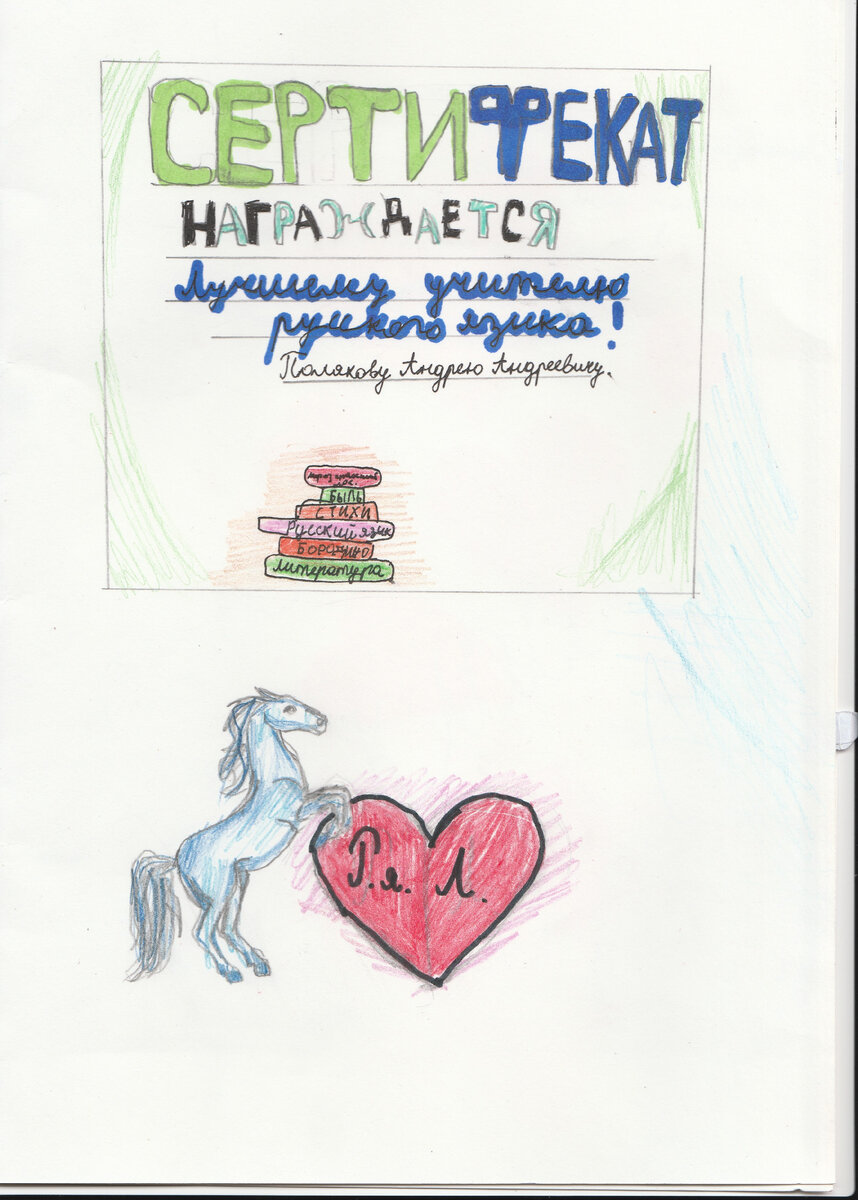 СЕРТИФЕКАТ
НАГРАЖДАЕТСЯ
Лучшему учителю
руского языка!
Полякову Андрею Андреевичу.
БЫЛЬ
СТИХИ
Русский язик
БОРОДИНО
Литература
Р.я. Л.